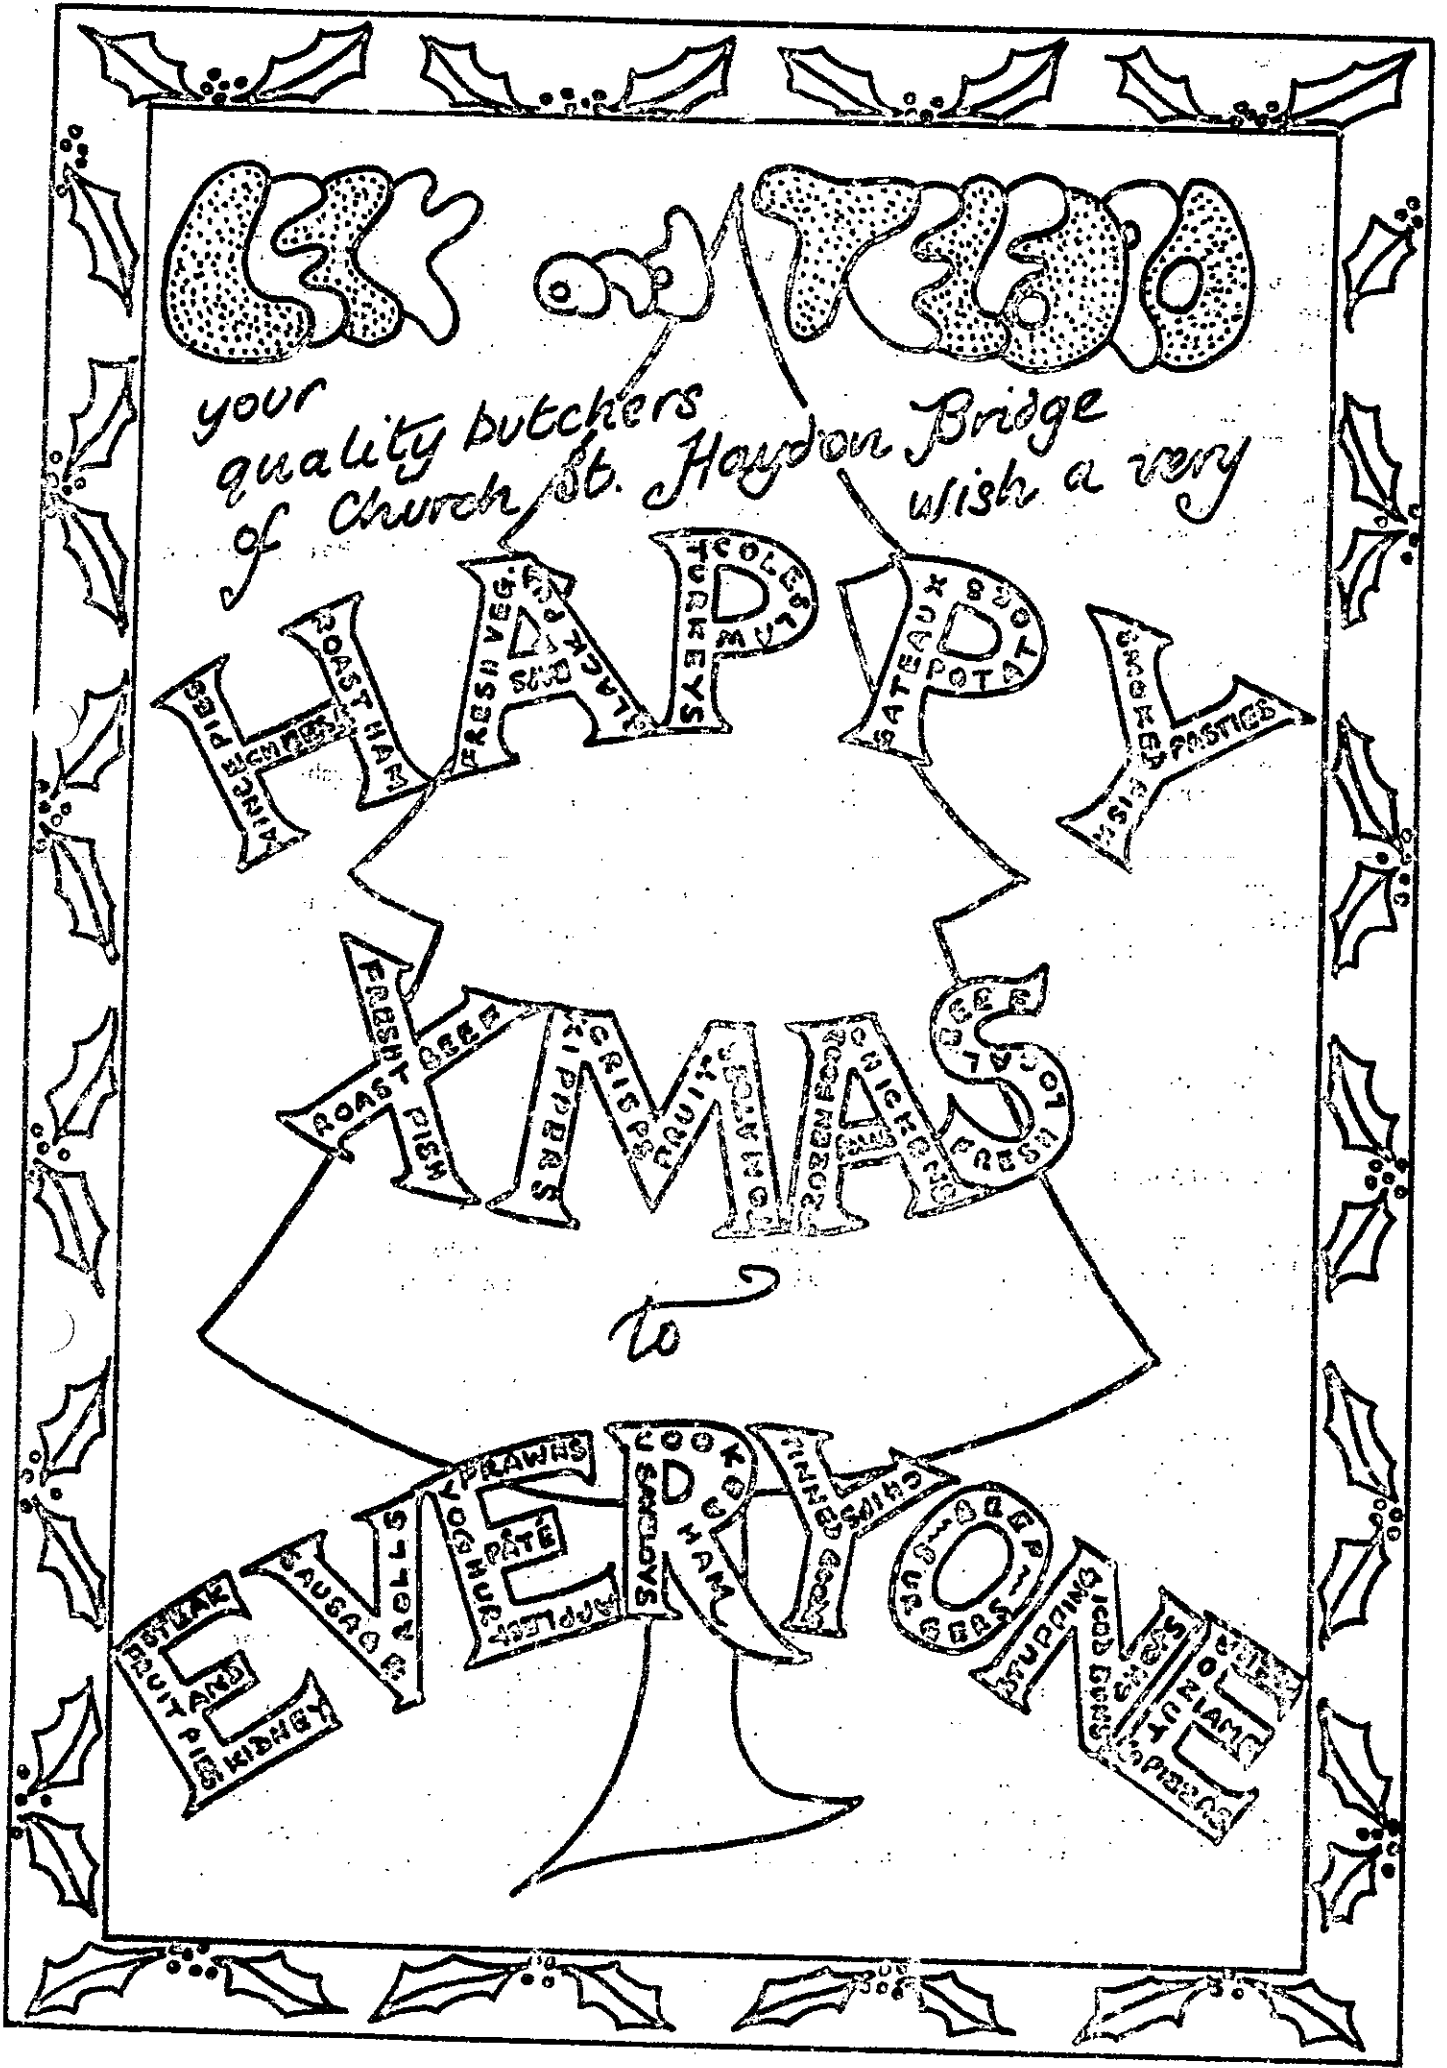 LES and TEDD
your
quality butchers
of Church St. Haydon Bridge
wish a very
HAPPY
MINCE PIES
CHEESE
ROAST HAM
FRESH VEG.
BLACK PUD
TURKEYS
COLESLAW
GATEAUX
POTATOES
SMOKED FISH
PASTIES
XMAS
FRESH FISH
ROAST BEEF
KIPPERS
CRISPS
FRUIT
CHICKENS
FRESH LOCAL BEEF
to
EVERYONE
STEAK
AND
KIDNEY
FRUIT PIES
SAUSAGE ROLLS
YOGHURTS
PRAWNS
PÂTÉ
APPLES
SAVELOYS
COOKED HAM
TINNED GOODS
CHIPS
BEEFBURGERS
STUFFING